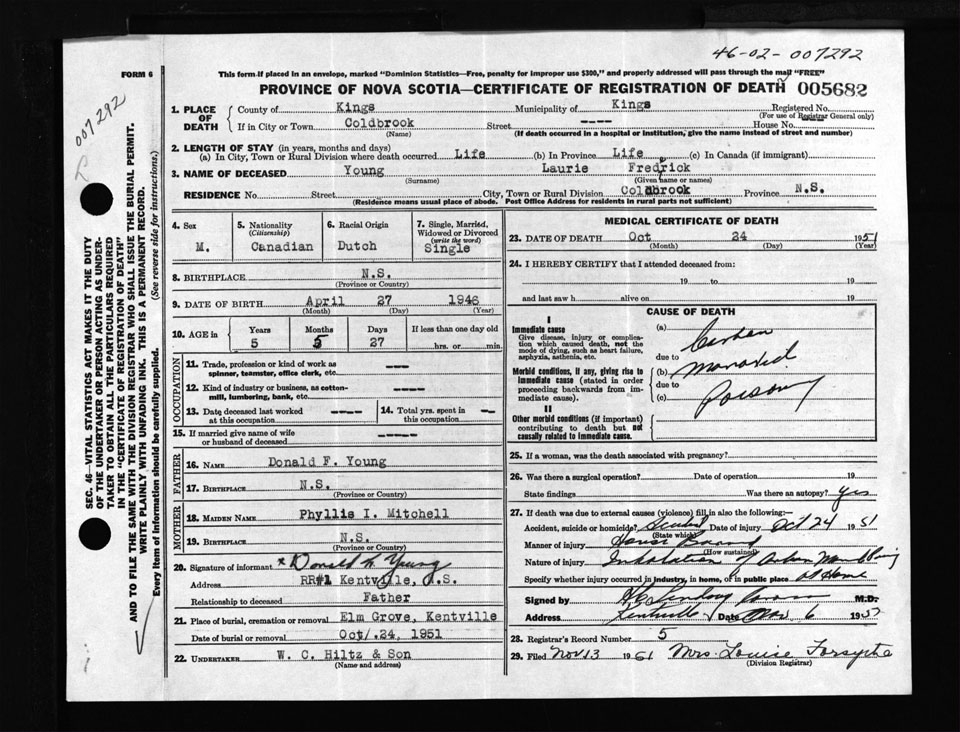 46-02-007292
FORM 6
This form if placed in an envelope, marked "Dominion Statistics—Free, penalty for improper use $300," and properly addressed will pass through the mail "FREE"
PROVINCE OF NOVA SCOTIA—CERTIFICATE OF REGISTRATION OF DEATH 005682
007292
SEC. 46—VITAL STATISTICS ACT MAKES IT THE DUTY
OF THE UNDERTAKER OR PERSON ACTING AS UNDER-
TAKER TO OBTAIN ALL THE PARTICULARS REQUIRED
IN THE "CERTIFICATE OF REGISTRATION OF DEATH"
AND TO FILE THE SAME WITH THE DIVISION REGISTRAR WHO SHALL ISSUE THE BURIAL PERMIT.
WRITE PLAINLY WITH UNFADING INK. THIS IS A PERMANENT RECORD.
Every item of Information should be carefully supplied. (See reverse side for instructions.)
1. PLACE OF DEATH County of Kings Municipality of Kings Registered No.
(For use of Registrar General only)
If in City or Town Coldbrook Street ---- House No.
(Name) (If death occurred in a hospital or institution, give the name instead of street and number)
2. LENGTH OF STAY (in years, months and days)
(a) In City, Town or Rural Division where death occurred Life (b) In Province Life (c) In Canada (if immigrant)
3. NAME OF DECEASED Young Laurie Fredrick
(Surname) (Given name or names)
RESIDENCE No. Street City, Town or Rural Division Coldbrook Province N.S.
(Residence means usual place of abode. Post Office Address for residents in rural parts not sufficient)
4. Sex M.
5. Nationality (Citizenship) Canadian
6. Racial Origin Dutch
7. Single, Married, Widowed or Divorced (write the word) Single
8. BIRTHPLACE N.S.
(Province or Country)
9. DATE OF BIRTH April 27 1946
(Month) (Day) (Year)
10. AGE in Years Months Days If less than one day old
5 5 27 hrs. or min.
OCCUPATION
11. Trade, profession or kind of work as spinner, teamster, office clerk, etc. ---
12. Kind of industry or business, as cotton-mill, lumbering, bank, etc. ----
13. Date deceased last worked at this occupation ----
14. Total yrs. spent in this occupation --
15. If married give name of wife or husband of deceased -----
FATHER
16. NAME Donald F. Young
17. BIRTHPLACE N.S.
(Province or Country)
MOTHER
18. MAIDEN NAME Phyllis I. Mitchell
19. BIRTHPLACE N.S.
(Province or Country)
20. Signature of informant Donald Young
Address RR#1 Kentville, N.S.
Relationship to deceased Father
21. Place of burial, cremation or removal Elm Grove, Kentville
Date of burial or removal Oct/.24, 1951
22. UNDERTAKER W. C. Hiltz & Son
(Name and address)
MEDICAL CERTIFICATE OF DEATH
23. DATE OF DEATH Oct 24 1951
(Month) (Day) (Year)
24. I HEREBY CERTIFY that I attended deceased from:
19 to 19
and last saw h alive on 19
CAUSE OF DEATH
I
Immediate cause
Give disease, injury or complication which caused death, not the mode of dying, such as heart failure, asphyxia, asthenia, etc.
(a) Carbon
due to
Morbid conditions, if any, giving rise to immediate cause (stated in order proceeding backwards from immediate cause).
(b) Monoxid
due to
(c) Poisoning
II
Other morbid conditions (if important) contributing to death but not causally related to immediate cause.
25. If a woman, was the death associated with pregnancy?
26. Was there a surgical operation? Date of operation 19
State findings Was there an autopsy? Yes
27. If death was due to external causes (violence) fill in also the following:
Accident, suicide or homicide? Date of injury Oct 24 1951
(State which)
Manner of injury House
(How sustained)
Nature of injury Inhalation of
Specify whether injury occurred in industry, in home, or in public place at Home
Signed by M.D.
Address Kentville Date Nov 6 195
28. Registrar's Record Number 5
29. Filed Nov 13 1951 Mrs. Louise Forsythe
(Division Registrar)